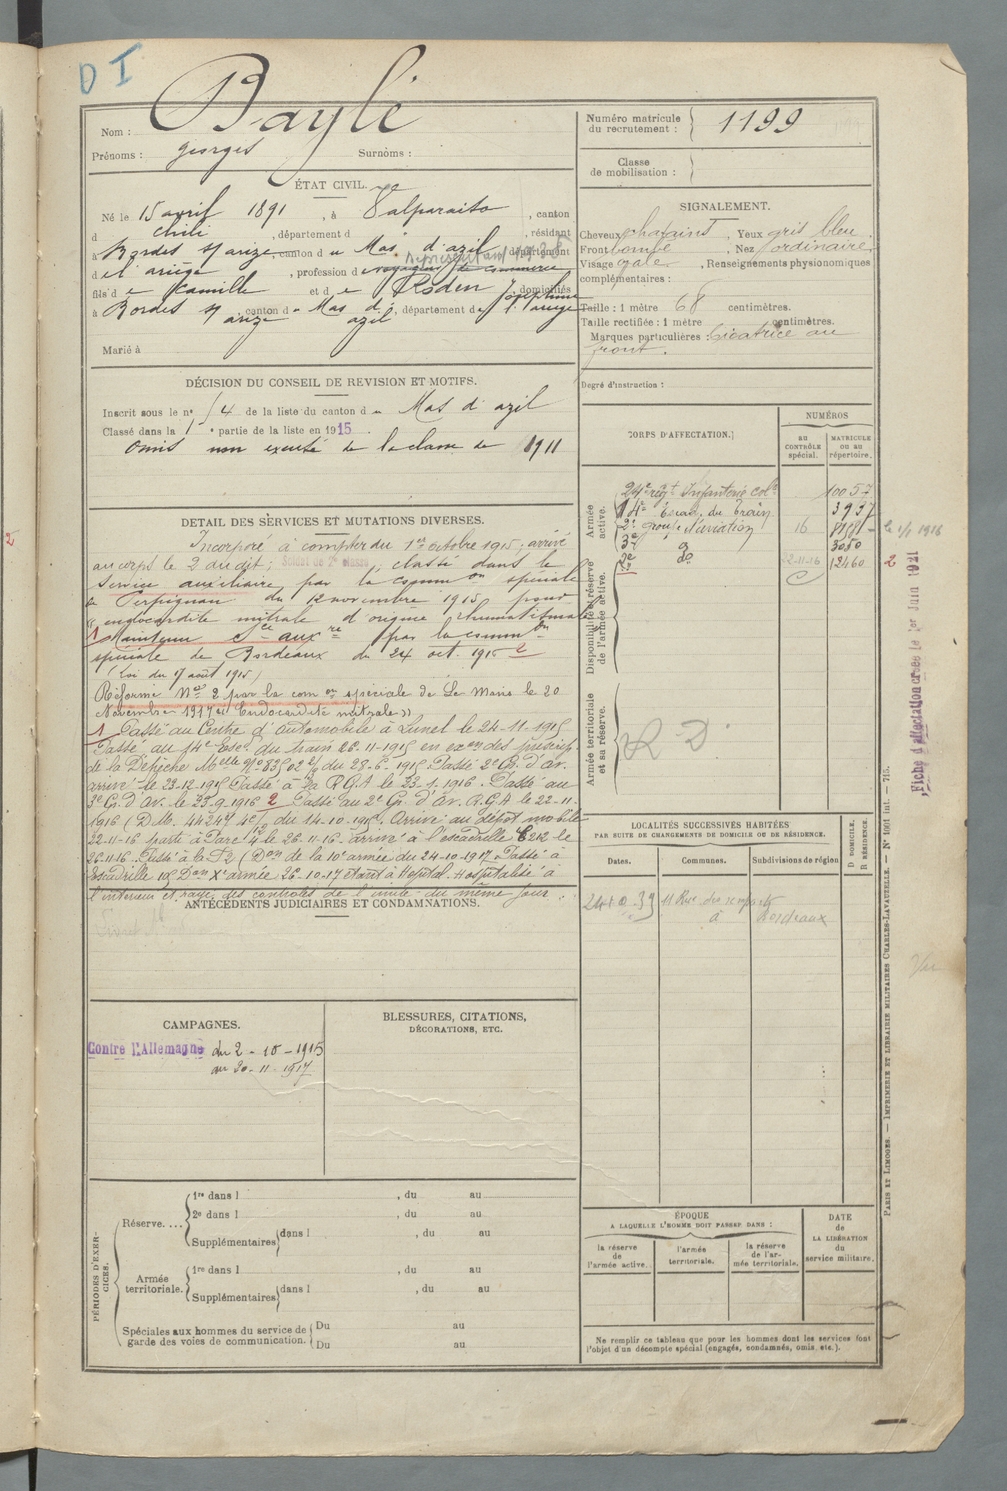 D I
Nom : Baylé
Prénoms : georges Surnoms :
Numéro matricule
du recrutement : 1199
Classe
de mobilisation :
ÉTAT CIVIL.
Né le 15 avril 1891, à Valparaiso, canton
d chili, département d , résidant
à Bordes s/ arize, canton du Mas d'azil département
d el ariège, profession de voyageur de commerce
fils de Camille et de Roden Joséphine domiciliés
à Bordes s/ arize, canton du Mas d'azil, département de l'ariège
Marié à
SIGNALEMENT.
Cheveux chatains Yeux gris bleu
Front bombé, Nez ordinaire
Visage ovale, Renseignements physionomiques
complémentaires :
Taille : 1 mètre 68 centimètres.
Taille rectifiée : 1 mètre centimètres.
Marques particulières : Cicatrice au
front.
Degré d'instruction :
DÉCISION DU CONSEIL DE REVISION ET MOTIFS.
Inscrit sous le n° 4 de la liste du canton du Mas d'azil
Classé dans la 1 e partie de la liste en 1915.
Omis non excusé de la classe de 1911
CORPS D'AFFECTATION.
NUMÉROS
AU CONTRÔLE spécial.
MATRICULE ou au répertoire.
Armée active.
24e régt Infanterie colle 10057
14e Escad. du Train 3937
2e groupe d'aviation 16 8158 le 1/1 1916
3e d° 3050
2e d° 22-11-16 12460 2
Disponibilité et réserve de l'armée active.
Armée territoriale et sa réserve.
R D
Fiche d'affectation créée le 1er Juin 1921
DETAIL DES SERVICES ET MUTATIONS DIVERSES.
Incorporé à compter du 1er octobre 1915; arrivé
au corps le 2 du dit; Soldat de 2e classe, classé dans le
service auxiliaire par la common spéciale
de Perpignan du 12 novembre 1915 pour
"endocardite mitrale d'origine rhumatismale"
1 Maintenu Sce auxre par la common
spéciale de Bordeaux du 24 oct. 1916 2
(loi du 17 août 1915)
Réformé N° 2 par la com on spéciale de Le Mans le 20
Novembre 1917 "Endocardite mitrale"
1 Passé au Centre d'Automobile à Lunel le 24-11-1915
Passé au 14e Escon du train 26-11-1915 en exon des prescrip.
de la Dépêche Melle N° 83502 du 28-6-1915. Passé 2e Gr. d'av.
arrivé le 23-12-1915 Passé à la RGA le 23-1-1916. Passé au
3e Gr. d'Av. le 23-9-1916 2 Passé au 2e Gr. d'Av. R.G.A le 22-11-
1916 du 14-10-1916. Arrivé au dépôt mobile
22-11-16 parti à Parc 4 le 26-11-16. arrivé à l'escadrille C212 le
26-11-16. Passé à la (Don de la 10e armée du 24-10-1917. Passé à
Escadrille Don Xe armée 26-10-17 étant à Hôpital. Hospitalisé à
l'intérieur et rayé des contrôles de l'unité du même jour.
ANTÉCÉDENTS JUDICIAIRES ET CONDAMNATIONS.
LOCALITÉS SUCCESSIVES HABITÉES
PAR SUITE DE CHANGEMENTS DE DOMICILE OU DE RÉSIDENCE.
Dates. Communes. Subdivisions de région
D DOMICILE. R RÉSIDENCE.
24-10-39 11 Rue des remparts
à Bordeaux
CAMPAGNES.
Contre l'Allemagne du 2-10-1915
au 20-11-1917
BLESSURES, CITATIONS,
DÉCORATIONS, ETC.
PÉRIODES D'EXERCICES.
Réserve....
1re dans l , du au
2e dans l , du au
Supplémentaires dans l , du au
Armée territoriale.
1re dans l , du au
Supplémentaires dans l , du au
Spéciales aux hommes du service de
garde des voies de communication.
Du au
Du au
ÉPOQUE
A LAQUELLE L'HOMME DOIT PASSER DANS :
la réserve de l'armée active.
l'armée territoriale.
la réserve de l'armée territoriale.
DATE de LA LIBÉRATION du service militaire.
Ne remplir ce tableau que pour les hommes dont les services font
l'objet d'un décompte spécial (engagés, condamnés, omis, etc.).
PARIS ET LIMOGES. — IMPRIMERIE ET LIBRAIRIE MILITAIRES CHARLES-LAVAUZELLE. — N° 1001 int. — 715.